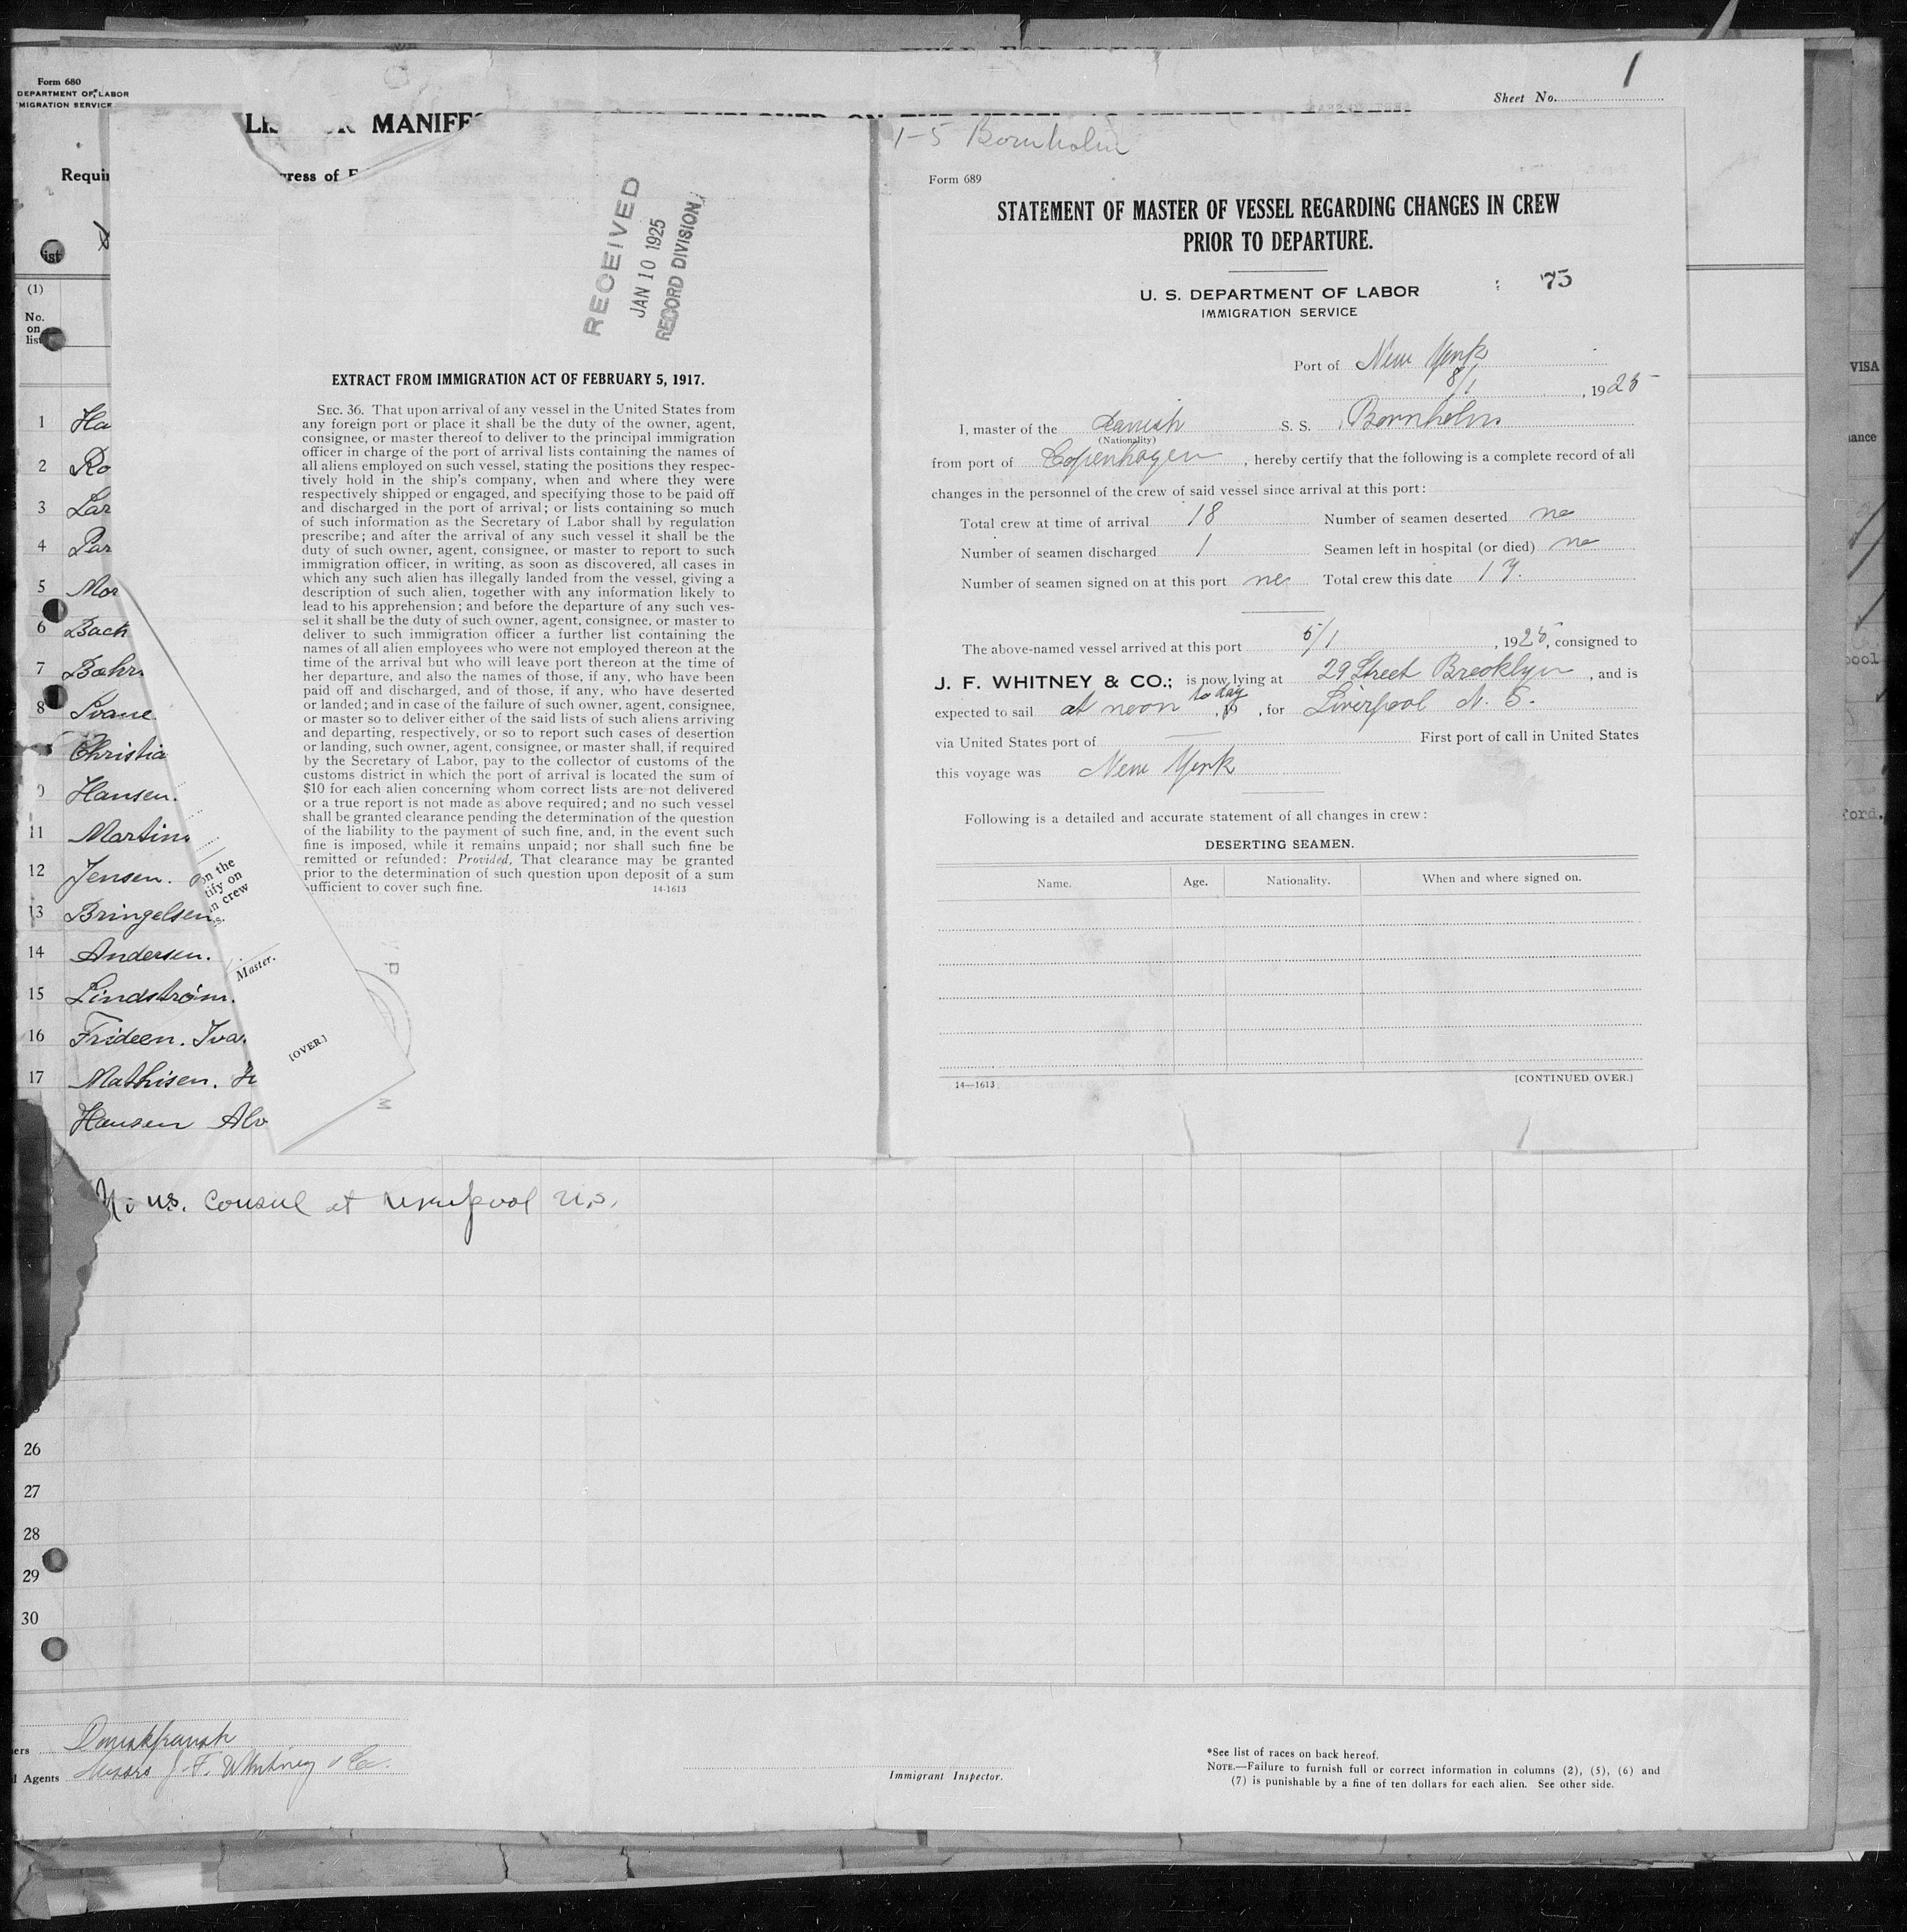 Form 680
DEPARTMENT OF LABOR
MIGRATION SERVICE
Sheet No. 1
MANIFES
Requir
gress of
ist
(1)
No.
on
list
1 Ha
2 Ro
3 Lar
4 Par
5 Mor
6 Bach
7 Bæhr
8 Svane
Christia
Hansen.
11 Martins
12 Jensen.
13 Bringelsen
14 Andersen.
15 Lindstrøm.
16 Frideen. Iva
17 Mathisen.
Hansen Alv
on the
tify on
in crew
s.
Master.
[OVER]
RECEIVED
JAN 10 1925
RECORD DIVISION
EXTRACT FROM IMMIGRATION ACT OF FEBRUARY 5, 1917.
SEC. 36. That upon arrival of any vessel in the United States from
any foreign port or place it shall be the duty of the owner, agent,
consignee, or master thereof to deliver to the principal immigration
officer in charge of the port of arrival lists containing the names of
all aliens employed on such vessel, stating the positions they respec-
tively hold in the ship's company, when and where they were
respectively shipped or engaged, and specifying those to be paid off
and discharged in the port of arrival; or lists containing so much
of such information as the Secretary of Labor shall by regulation
prescribe; and after the arrival of any such vessel it shall be the
duty of such owner, agent, consignee, or master to report to such
immigration officer, in writing, as soon as discovered, all cases in
which any such alien has illegally landed from the vessel, giving a
description of such alien, together with any information likely to
lead to his apprehension; and before the departure of any such ves-
sel it shall be the duty of such owner, agent, consignee, or master to
deliver to such immigration officer a further list containing the
names of all alien employees who were not employed thereon at the
time of the arrival but who will leave port thereon at the time of
her departure, and also the names of those, if any, who have been
paid off and discharged, and of those, if any, who have deserted
or landed; and in case of the failure of such owner, agent, consignee,
or master so to deliver either of the said lists of such aliens arriving
and departing, respectively, or so to report such cases of desertion
or landing, such owner, agent, consignee, or master shall, if required
by the Secretary of Labor, pay to the collector of customs of the
customs district in which the port of arrival is located the sum of
$10 for each alien concerning whom correct lists are not delivered
or a true report is not made as above required; and no such vessel
shall be granted clearance pending the determination of the question
of the liability to the payment of such fine, and, in the event such
fine is imposed, while it remains unpaid; nor shall such fine be
remitted or refunded: Provided, That clearance may be granted
prior to the determination of such question upon deposit of a sum
sufficient to cover such fine. 14-1613
1-5 Bornholm
Form 689
STATEMENT OF MASTER OF VESSEL REGARDING CHANGES IN CREW
PRIOR TO DEPARTURE.
75
U. S. DEPARTMENT OF LABOR
IMMIGRATION SERVICE
Port of New York
8/1, 1925
I, master of the danish S. S. Bornholm
(Nationality)
from port of Copenhagen, hereby certify that the following is a complete record of all
changes in the personnel of the crew of said vessel since arrival at this port:
Total crew at time of arrival 18 Number of seamen deserted no
Number of seamen discharged 1 Seamen left in hospital (or died) no
Number of seamen signed on at this port no Total crew this date 17.
The above-named vessel arrived at this port 5/1, 1925, consigned to
J. F. WHITNEY & CO.; is now lying at 29 Street Brooklyn, and is
expected to sail at noon to day, 19 , for Liverpool N. S.
via United States port of — First port of call in United States
this voyage was New York
Following is a detailed and accurate statement of all changes in crew:
DESERTING SEAMEN.
Name. Age. Nationality. When and where signed on.
14—1613 [CONTINUED OVER.]
VISA
ance
ool
ford.
No U.S. Consul at Liverpool N.S.
26
27
28
29
30
ers
l Agents Messrs J. F. Whitney & Co.
Immigrant Inspector.
*See list of races on back hereof.
NOTE.—Failure to furnish full or correct information in columns (2), (5), (6) and
(7) is punishable by a fine of ten dollars for each alien. See other side.